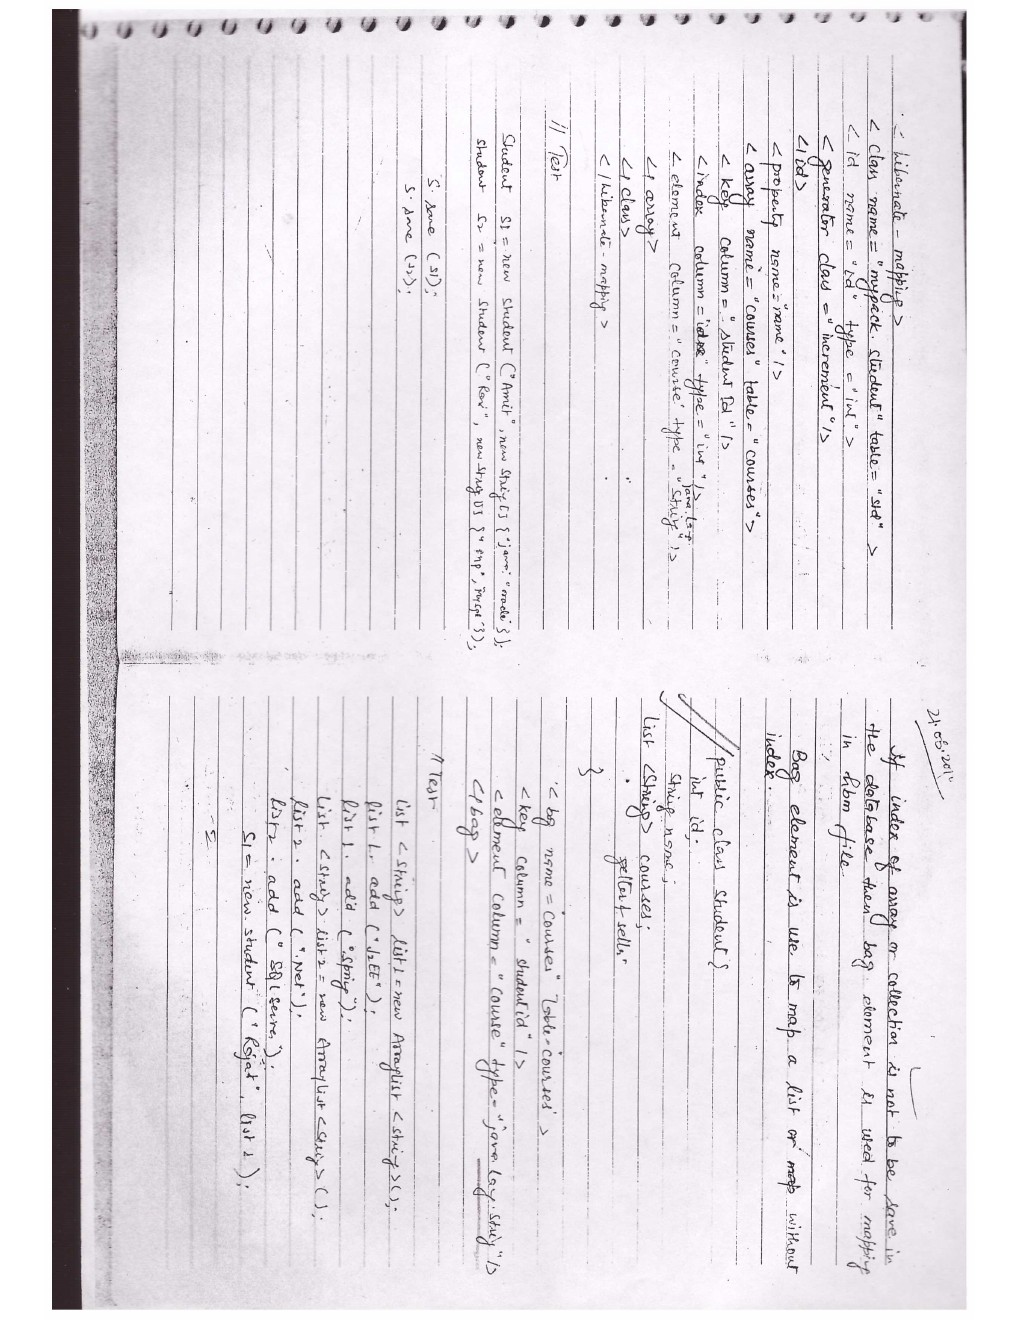 < hibernate - mapping >
< class name = "mypack. student" table = "std" >
< id name = "id" type = "int" >
< generator class = "increment" />
</id>
< property name = "name" />
< array name = "courses" table = "courses">
< key column = "student Id" />
<index column = "idx" type = "int" />
java.lang
< element column = "course" type = "String" />
</ array>
</ class>
</hibernate - mapping >
// Test
Student S1 = new Student ("Amit", new String [] {"java" "oracle"});
Student S2 = new Student ("Ravi", new String [] {"PHP", "Mysql"});
S. save (S1);
S. save (S2);
21.08.201
If index of array or collection is not to be save in
the database then bag element is used for mapping
in hbm file.
Bag element is use to map a list or map without
index.
public class Student {
int id;
String name;
List <String> courses;
getter & setter
}
< bag name = "courses" table = "courses" >
< key column = "studentid" />
< element column = "course" type = "java.lang.String" />
</ bag >
// Test
List <String> list1 = new ArrayList <String> ();
list 1. add ("J2EE");
list 1. add ("Spring");
List. <String> list 2 = new ArrayList <String> ();
list 2. add (".Net");
list 2. add ("SQL Server");
S1 = new student ("Rajat", list 1);